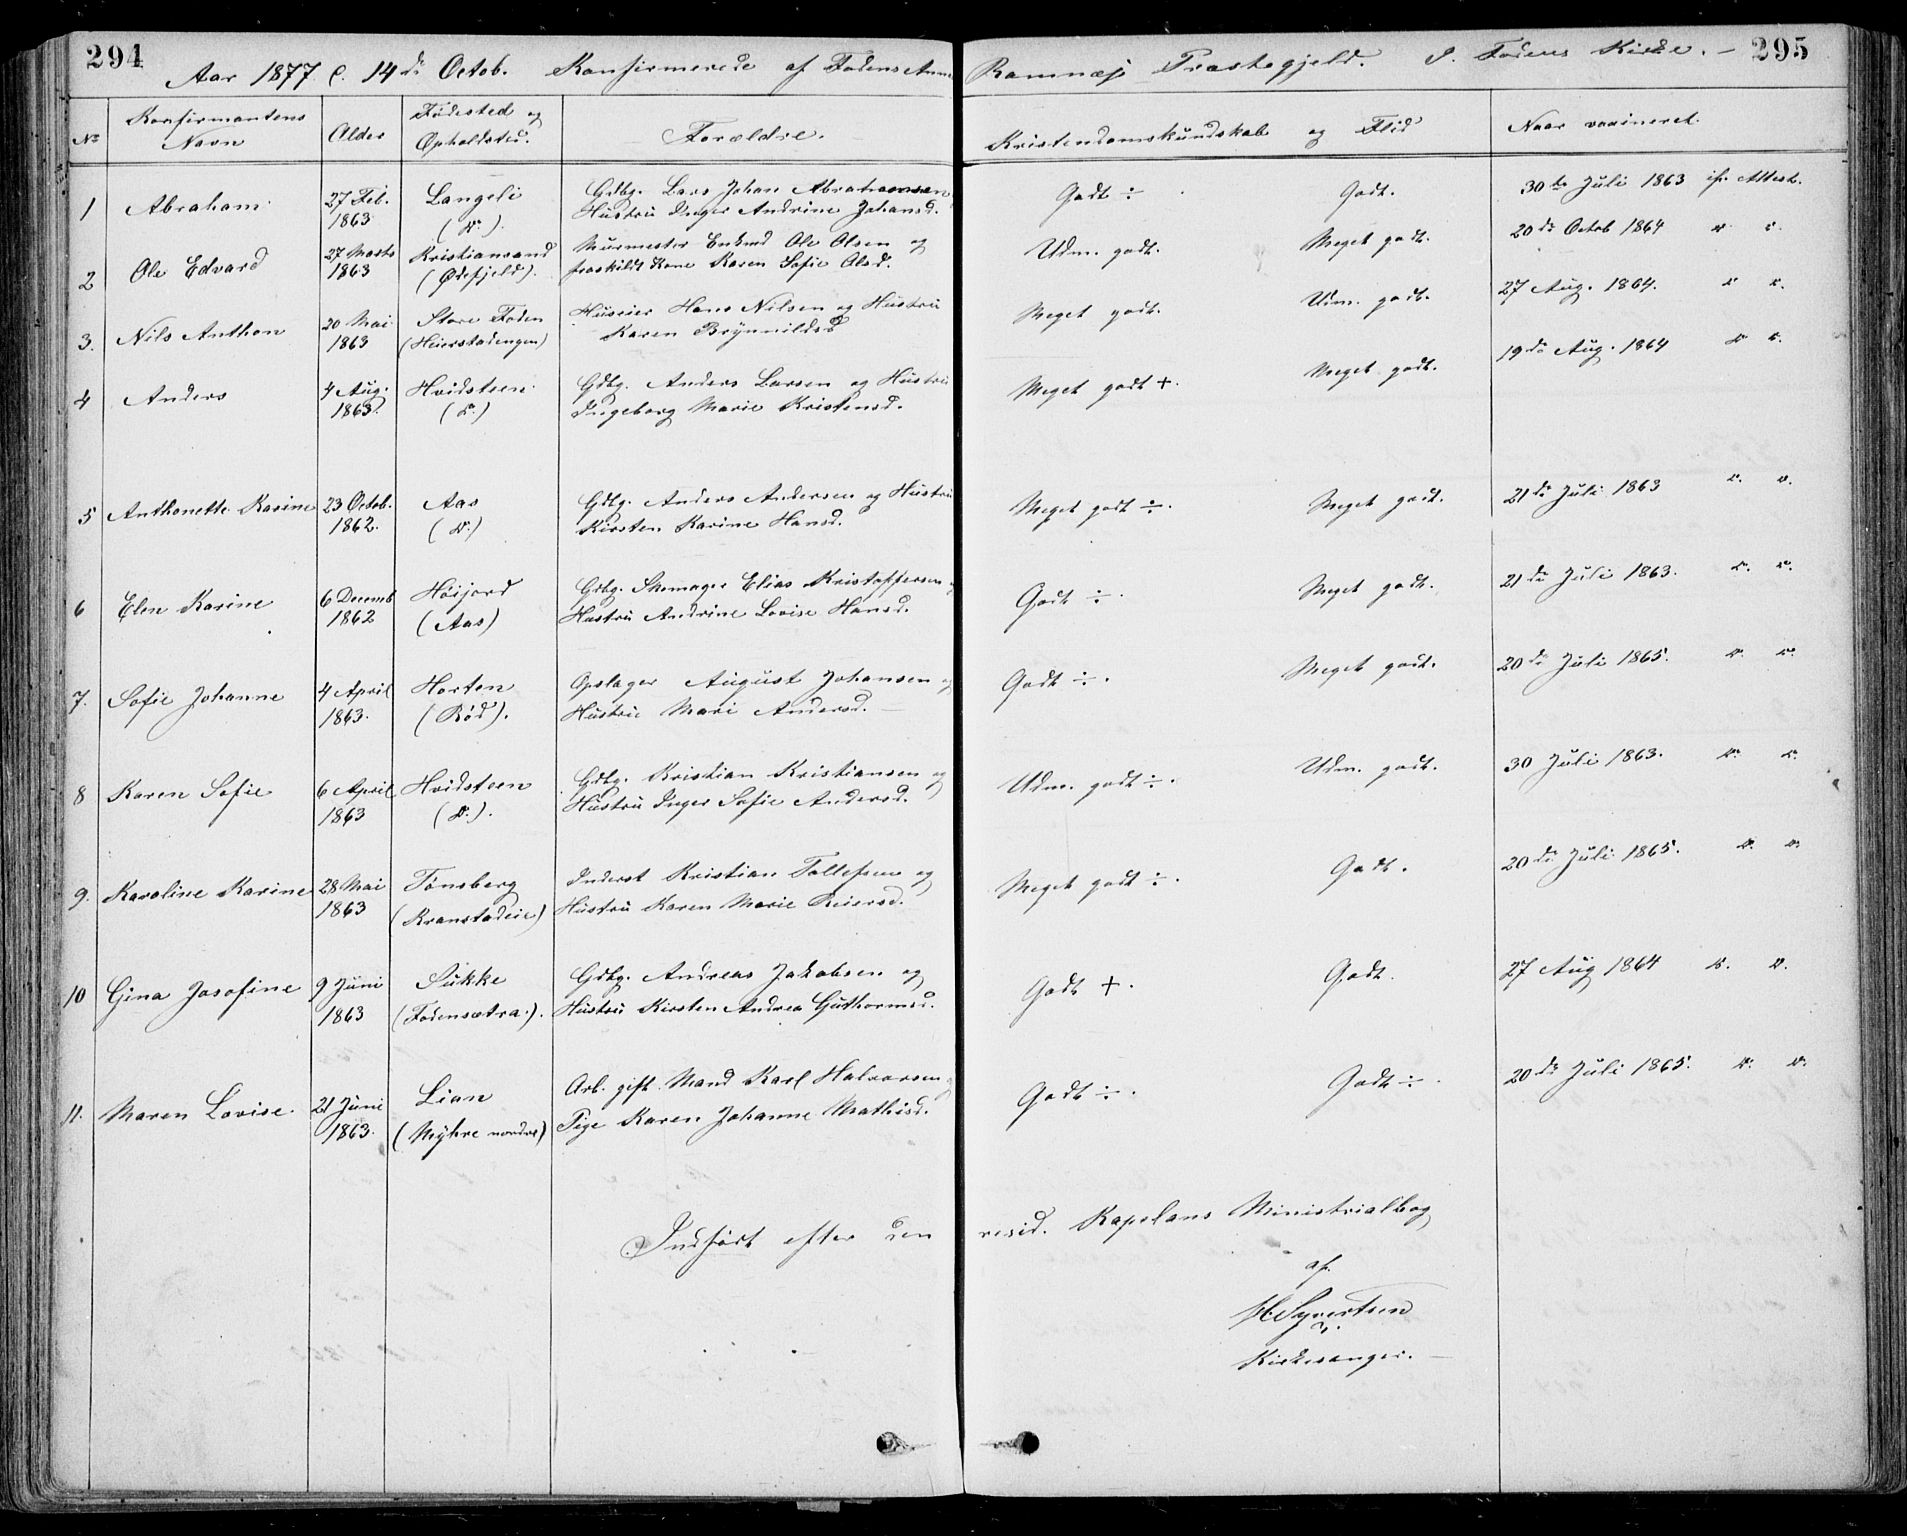 294
Aar 1877 d. 14de Octob. Konfirmerede af Fodens Anne Ramnæs Præstegjeld. I Fodens Kirke. — 295
No Konfirmantens Navn Alder Fødested og Opholdsted. Forældre. Kristendomskundskab og Flid Naar vaxineret.
1 Abraham. 27 Feb. 1863 Langeli (Do.). Gdbg. Lars Johan Abrahamsen Hustru Inger Andrine Johansd. Godt ÷ Godt. 30te Juli 1863 iflg. Attest.
2 Ole Edvard 27 Marts 1863 Kristiansand (Ødefjeld). Murmester Enkmd Ole Olsen og fraskildt Kone Karen Sofie Olsd. Udm. godt. Meget godt. 20de Octob 1864 " "
3. Nils Anthon 20 Mai 1863 Store Foden (Heierstadengen) Huseier Hans Nilsen og Hustru Karen Brynnildsd Meget godt. Udm. godt. 27 Aug. 1864. " "
4 Anders 4 Aug. 1863. Hvidsteen (Do.) Gdbg. Anders Larsen og Hustru Ingeborg Marie Kristensd. Meget godt +. Meget godt. 19de Aug. 1864 " "
5 Anthonette Karine 23 Octob. 1862. Aas (Do.) Gdbg. Anders Andersen og Hustru Kirsten Karine Hansd. Meget godt ÷. Meget godt. 21de Juli 1863 " "
6 Elen Karine 6 Decemb 1862 Høijord (Aas) Gdbg. Skomager Elias Kristoffersen og Hustru Andrine Lovise Hansd. Godt ÷. Meget godt. 21de Juli 1863. " "
7. Sofie Johanne 4 April 1863. Horten (Rød). Opslager August Johansen og Hustru Mari Andersd. — Godt ÷. Meget godt. 20de Juli 1865. " "
8 Karen Sofie 6 April 1863 Hvidsteen (Do.). Gdbg. Kristian Kristiansen og Hustru Inger Sofie Andersd. Udm. godt ÷. Udm. godt. 30 Juli 1863. " "
9. Karoline Karine 28 Mai 1863 Tønsberg (Kranstadeie) Inderst Kristian Tollefsen og Hustru Karen Marie Reiersd. Meget godt ÷. Godt. 20de Juli 1865. " "
10 Gina Josofine 9 Juni 1863 Sukke (Fodensætra). Gdbg. Andreas Jakobsen og Hustru Kirsten Andrea Guthormsd. Godt +. Godt. 27 Aug 1864 " "
11. Maren Lovise. 21 Juni 1863. Lian (Myhre nordre) Arb. gift Mand Karl Halvorsen og Pige Karen Johanne Mathisd. Godt ÷. Godt ÷. 20de Juli 1865. " "
Indført efter den resid. Kapelans Ministrialbog
af
H Syvertsen
Kirkesanger. —